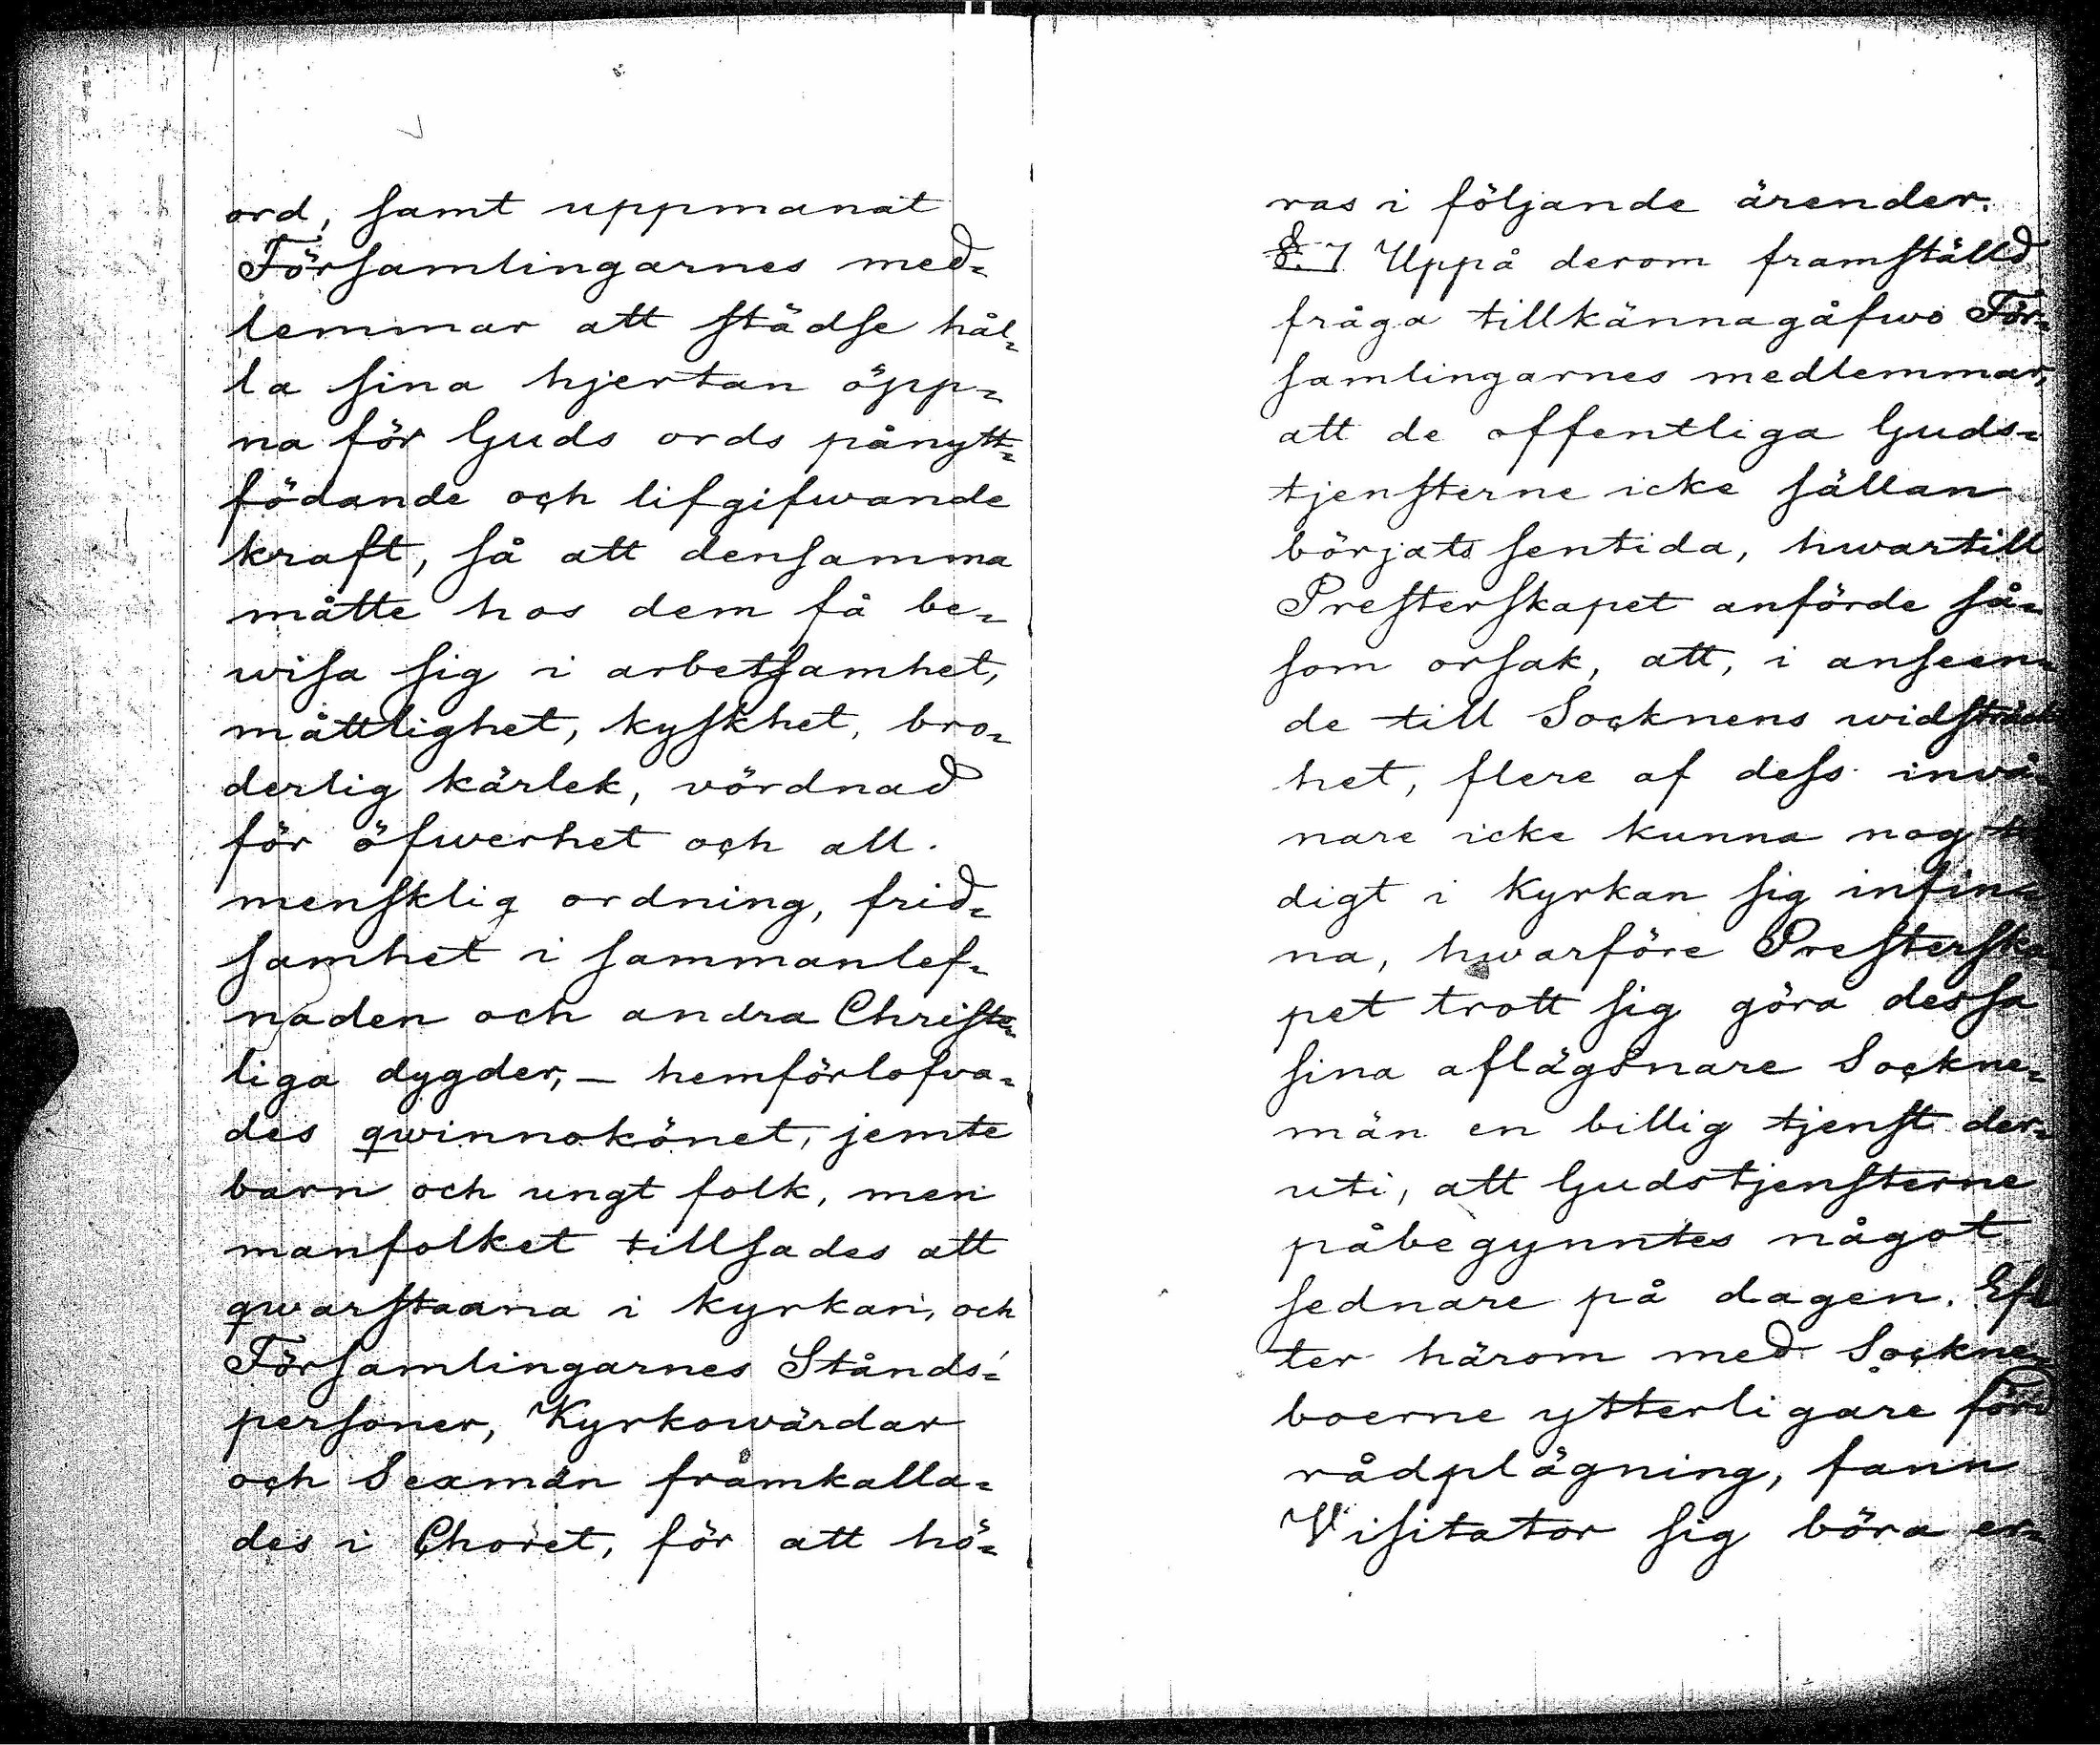 ord, samt uppmanat
Församlingarnes med-
lemmar att städse hål-
la sina hjertan öpp-
na för Guds ords pånytt-
födande och lifgifwande
kraft, så att densamma
måtte hos dem få be-
wisa sig i arbetsamhet,
måttlighet, kyskhet, bro-
derlig kärlek, vördnad
för öfwerhet och all.
mensklig ordning, frid-
samhet i sammanlef-
naden och andra Christe-
liga dygder, – hemförlofva-
des qwinnokönet, jemte
barn och ungt folk, men
manfolket tillsades att
qwarstanna i kyrkan, och
Församlingarnes Stånds-
personer, Kyrkowärdar
och Sexmän framkalla-
des i Choret, för att hö-
ras i följande ärender.
§. 1 Uppå derom framställd
fråga tillkännagåfwo För-
samlingarnes medlemmar,
att de offentliga Guds-
tjensterne icke sällan
börjats sentida, hwartill
Presterskapet anförde så-
som orsak, att, i anseen-
de till Socknens widsträckt
het, flere af dess invå-
nare icke kunna nog
digt i Kyrkan sig infin-
na, hwarföre Presterska-
pet trott sig göra dessa
sina aflägsnare Sockne-
män en billig tjenst der-
uti, att Gudstjensterne
påbegynntes något
sednare på dagen. Ef-
ter härom med Sockne-
boerne ytterligare förd
rådplägning, fann
Visitator sig böra er-